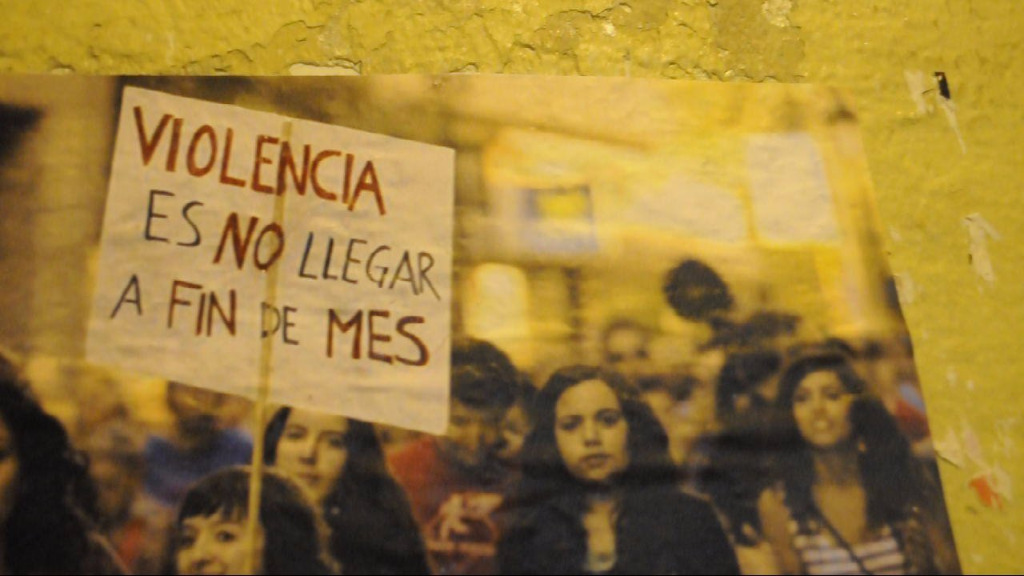 VIOLENCIA
ES NO LLEGAR
A FIN DE MES